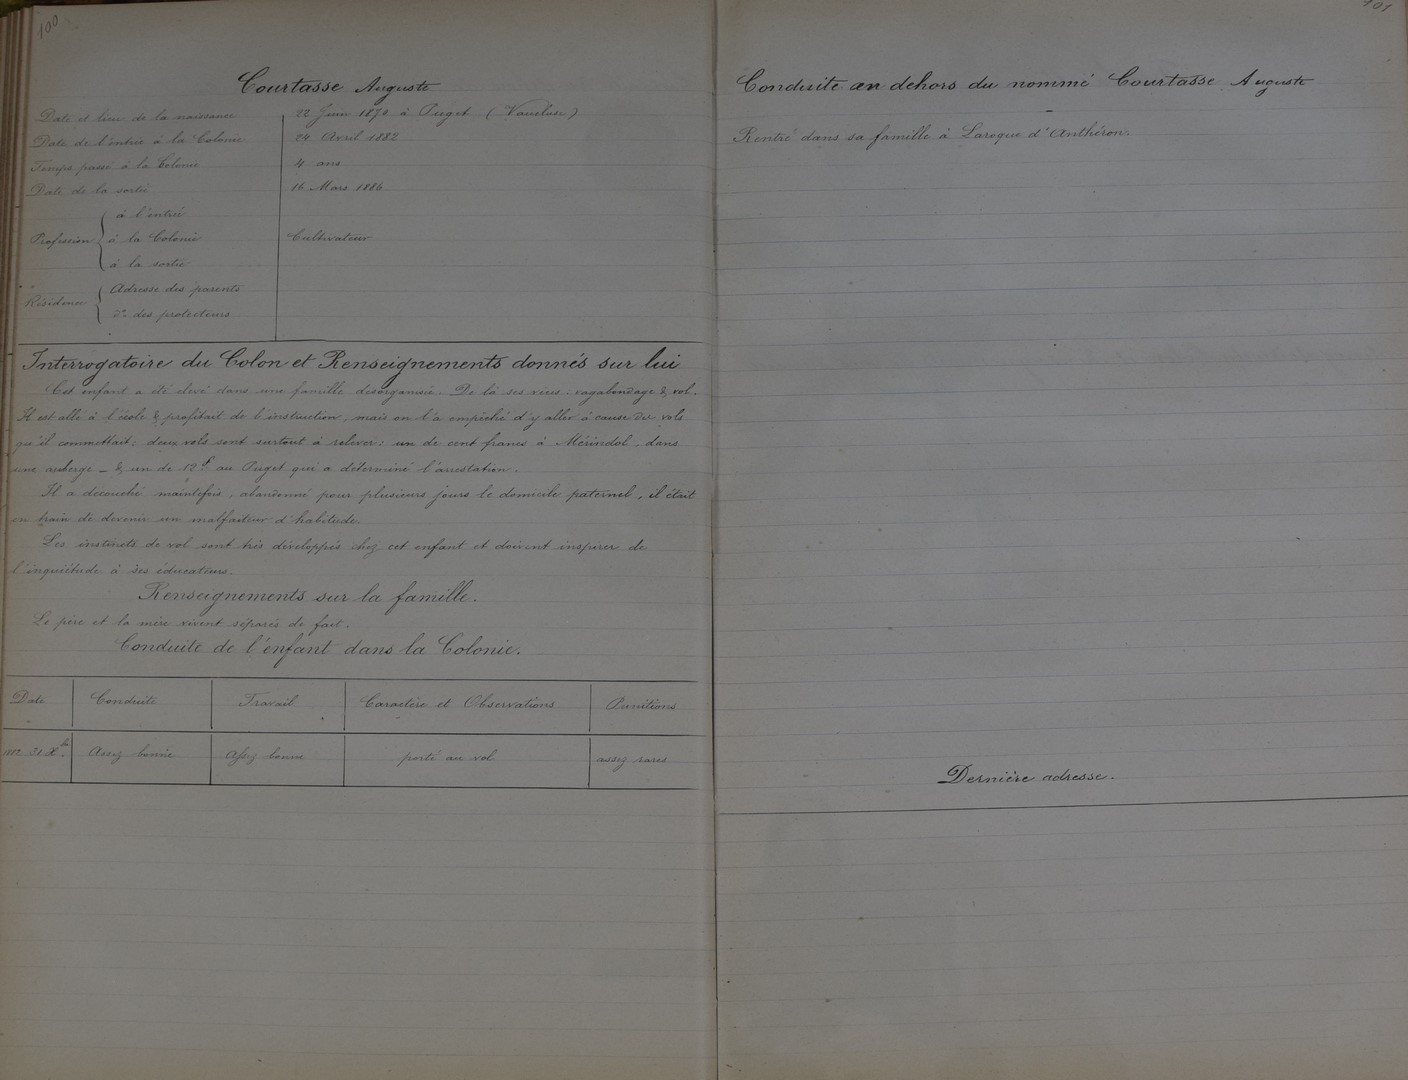 100
Courtasse Auguste
Date et lieu de la naissance 22 Juin 1870 à Puget (Vaucluse)
Date de l'entrée à la Colonie 24 Avril 1882
Temps passé à la Colonie 4 ans
Date de la sortie 16 Mars 1886
Profession
à l'entrée
à la Colonie Cultivateur
à la sortie
Résidence
Adresse des parents
do des protecteurs
Interrogatoire du Colon et Renseignements donnés sur lui
Cet enfant a été élevé dans une famille désorganisée. De là ses vices : vagabondage & vol.
Il est allé à l'école & profitait de l'instruction, mais on l'a empêché d'y aller à cause des vols
qu'il commettait ; deux vols sont surtout à relever : un de cent francs à Mérindol, dans
une auberge – & un de 12f au Puget qui a déterminé l'arrestation.
Il a découché maintefois, abandonné pour plusieurs jours le domicile paternel, il était
en train de devenir un malfaiteur d'habitude.
Les instincts de vol sont très développés chez cet enfant et doivent inspirer de
l'inquiétude à ses éducateurs.
Renseignements sur la famille.
Le père et la mère vivent séparés de fait.
Conduite de l'enfant dans la Colonie.
Date Conduite Travail Caractère et Observations Punitions
1882 31 Xbre Assez bonne Assez bonne porté au vol assez rares
101
Conduite au dehors du nommé Courtasse Auguste
Rentré dans sa famille à Laroque d'Anthéron.
Dernière adresse.